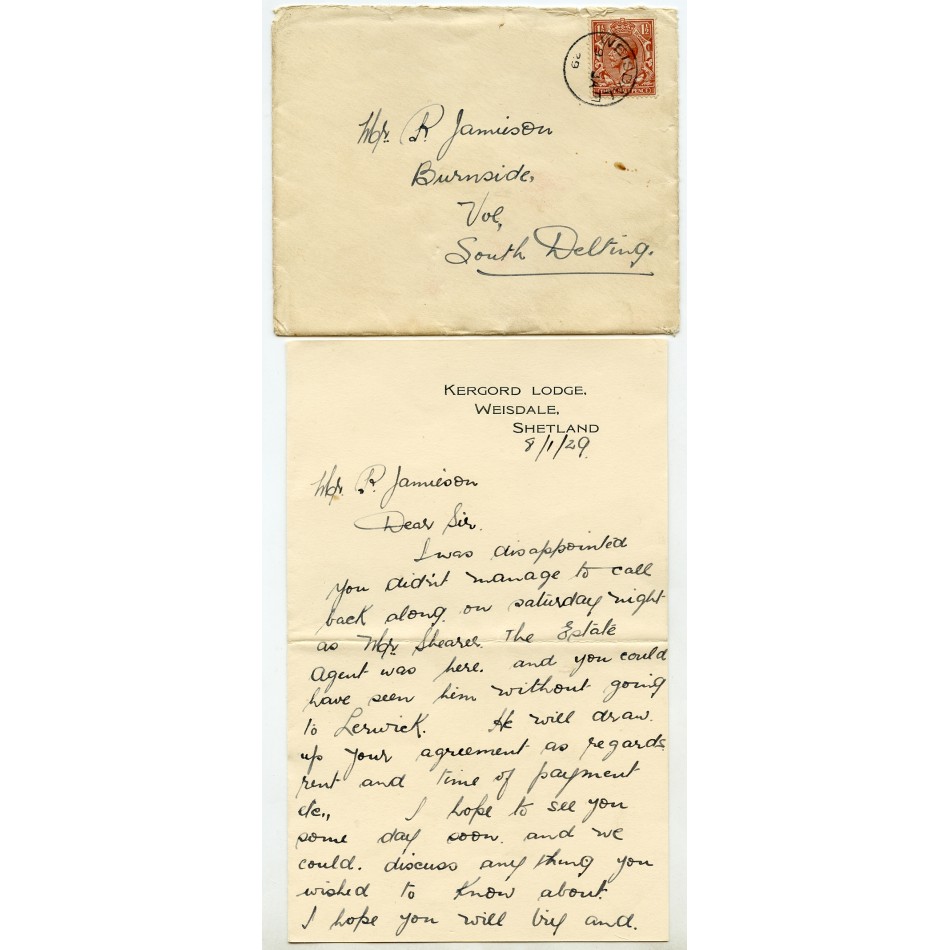 Mr. R. Jamieson
Burnside,
Voe,
South Delting.
WEISDALE
8 JA
29
KERGORD LODGE,
WEISDALE,
SHETLAND
8/1/29
Mr. R. Jamieson
Dear Sir.
I was disappointed
you didn't manage to call
back along on saturday night
as Mr. Shearer. The Estate
Agent was here. and you could
have seen him without going
to Lerwick. He will draw.
up your agreement as regards
rent and time of payment
etc., I hope to see you
some day soon. and we
could. discuss any thing you
wished to know about.
I hope you will try and.